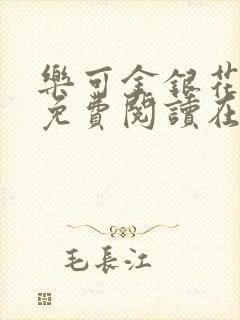 樂可金銀花
免費閱讀在
毛長江